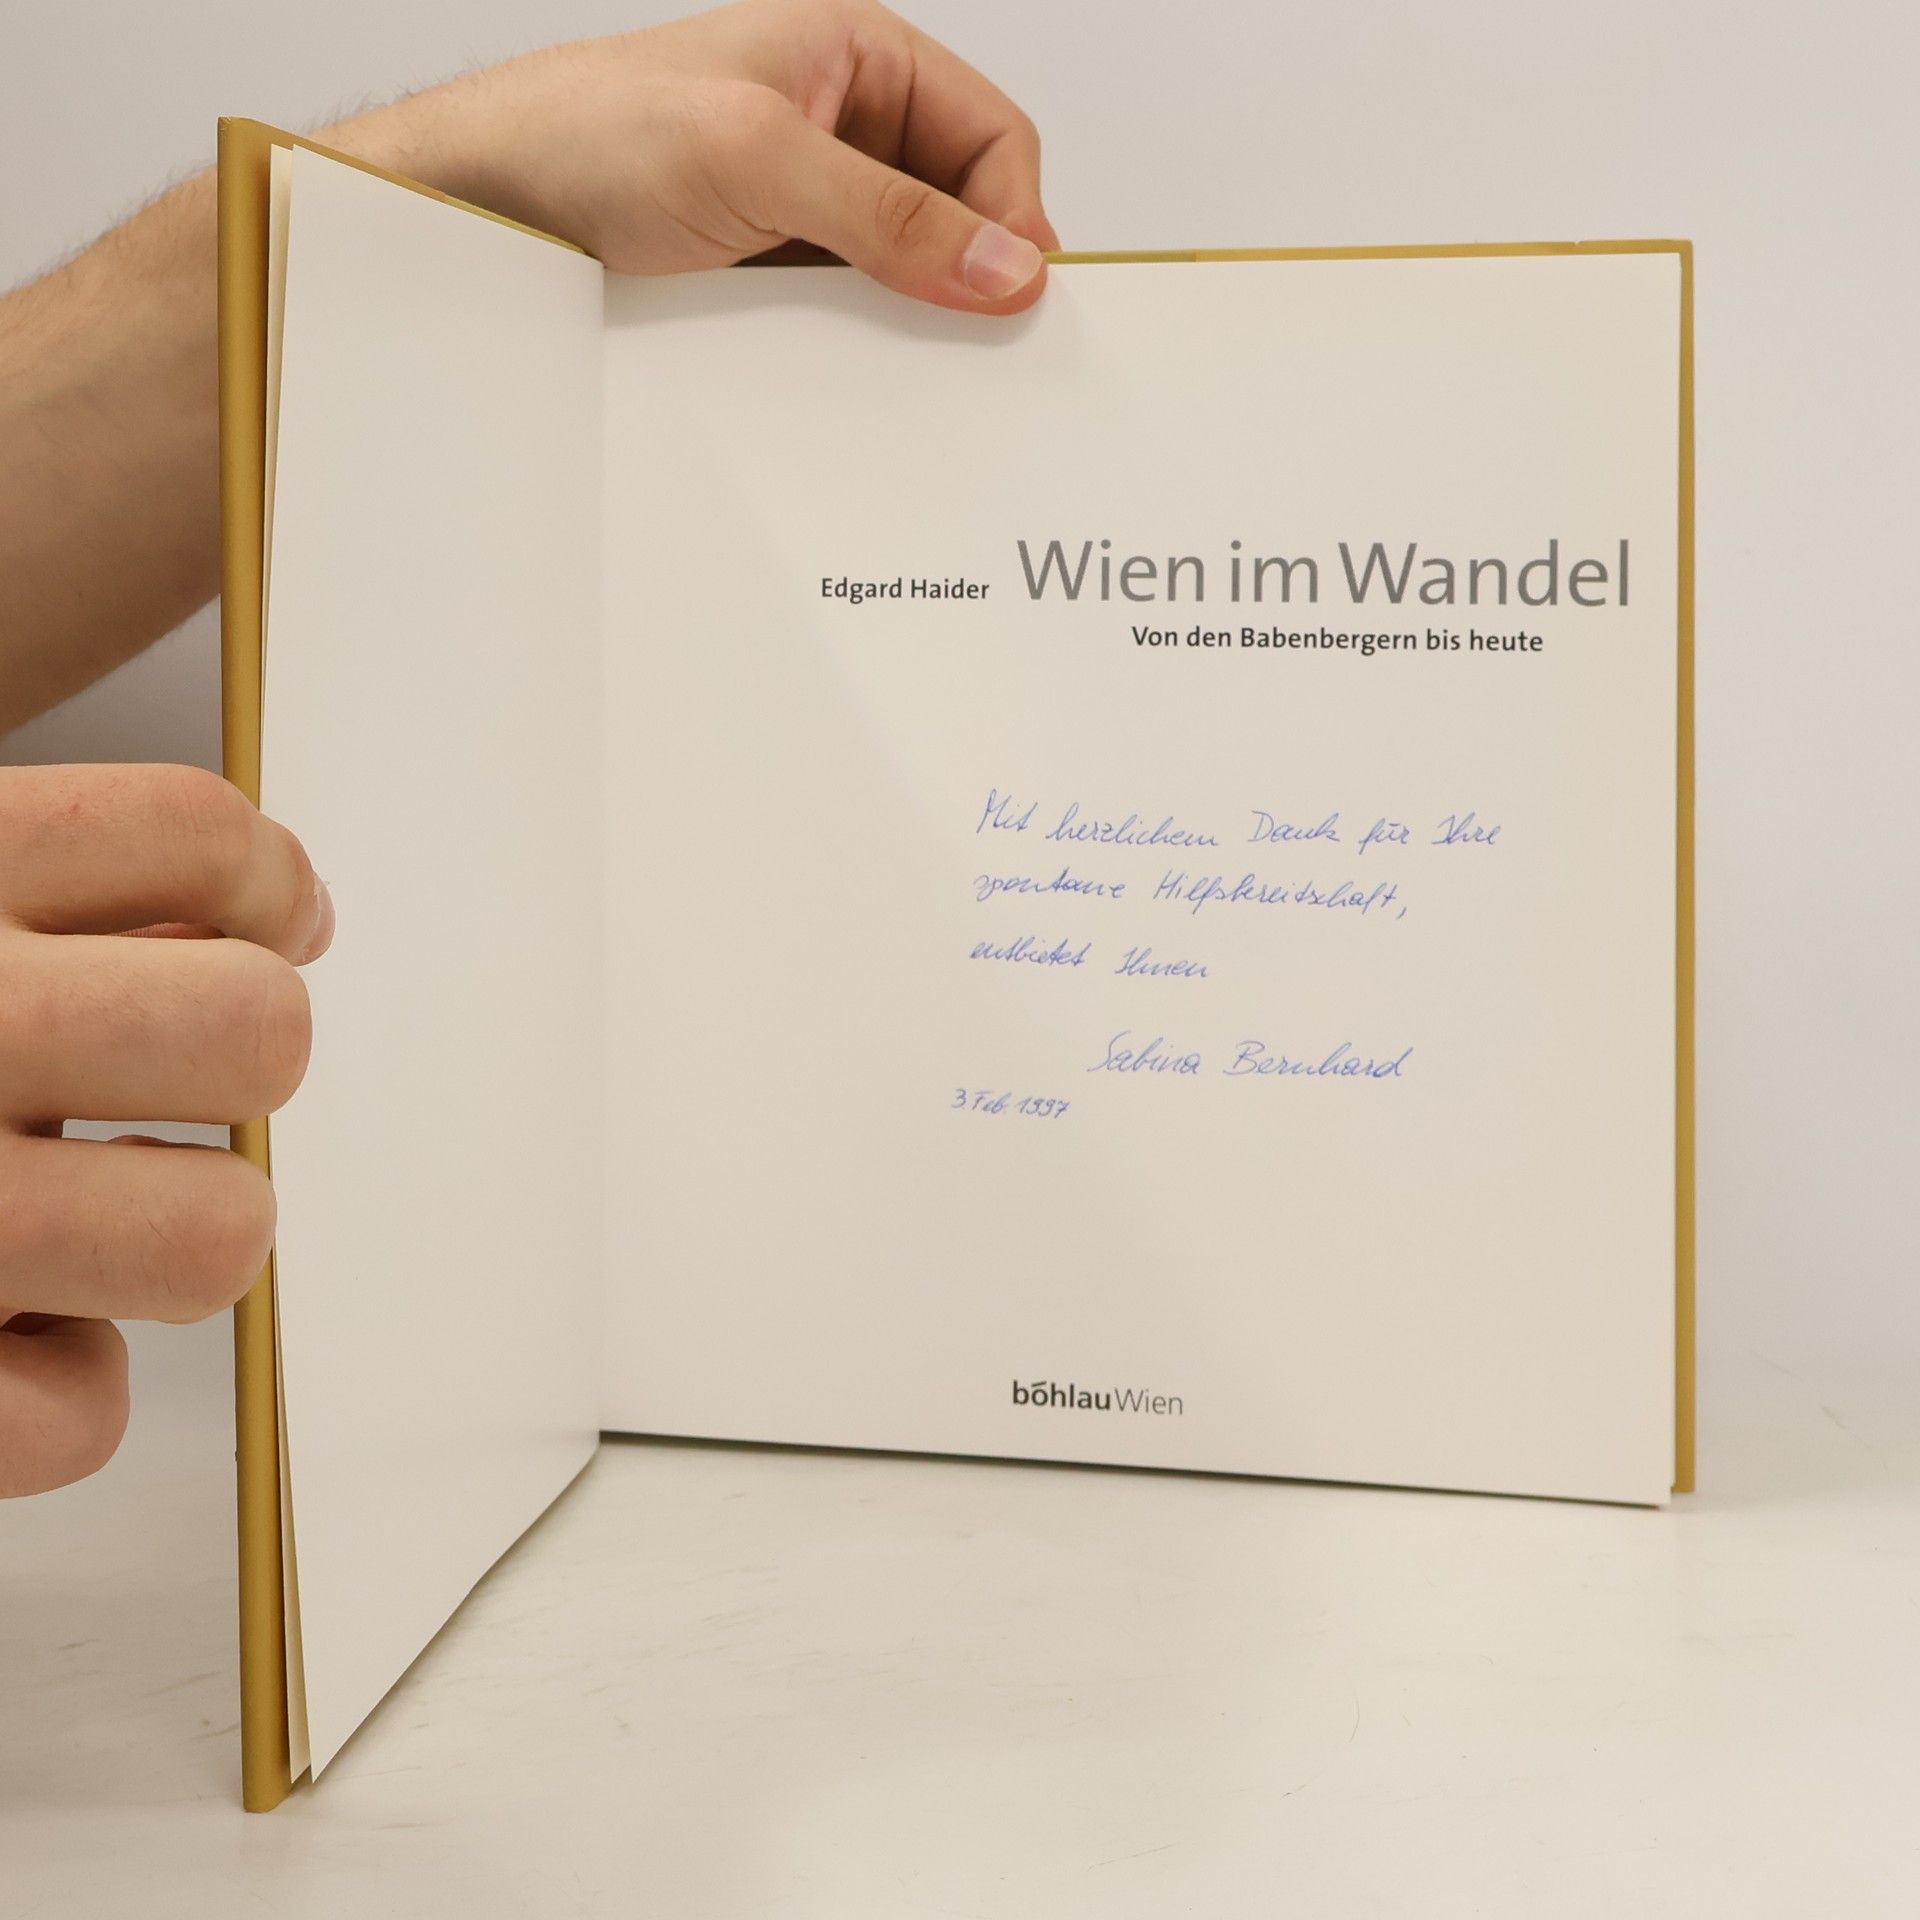 Edgard Haider Wien im Wandel
Von den Babenbergern bis heute
Mit herzlichem Dank für Ihre
spontane Hilfsbereitschaft,
entbietet Ihnen
Sabina Bernhard
3. Feb. 1997
böhlauWien